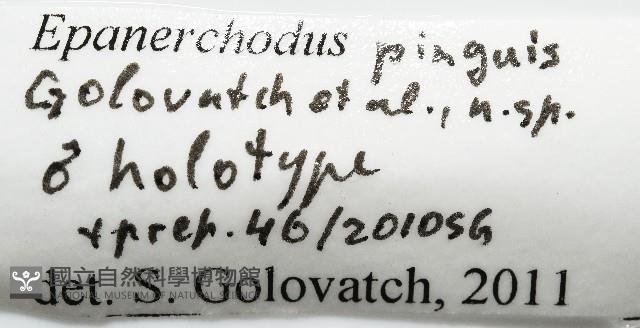 Epanerchodus pinguis
Golovatch et al., n.sp.
♂ holotype
+ prep. 46/2010SG
國立自然科學博物館
NATIONAL MUSEUM OF NATURAL SCIENCE
det. S. Golovatch, 2011